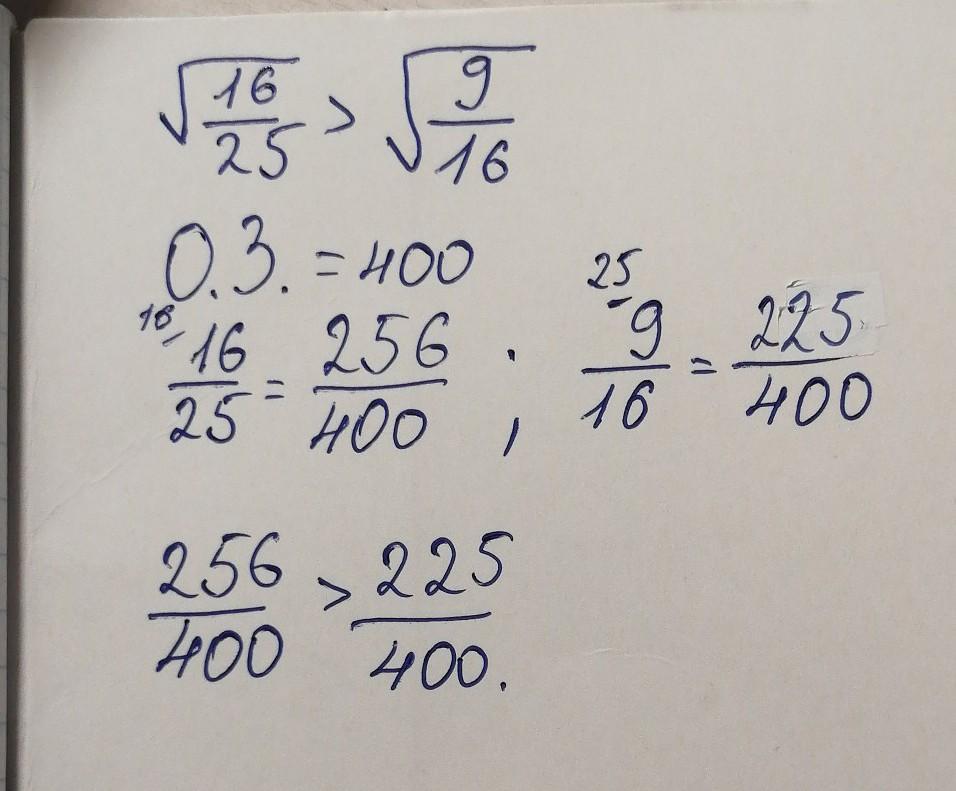 √16/25 > √9/16
О.З. = 400
16 16/25 = 256/400 ; 25 9/16 = 225/400
256/400 > 225/400.